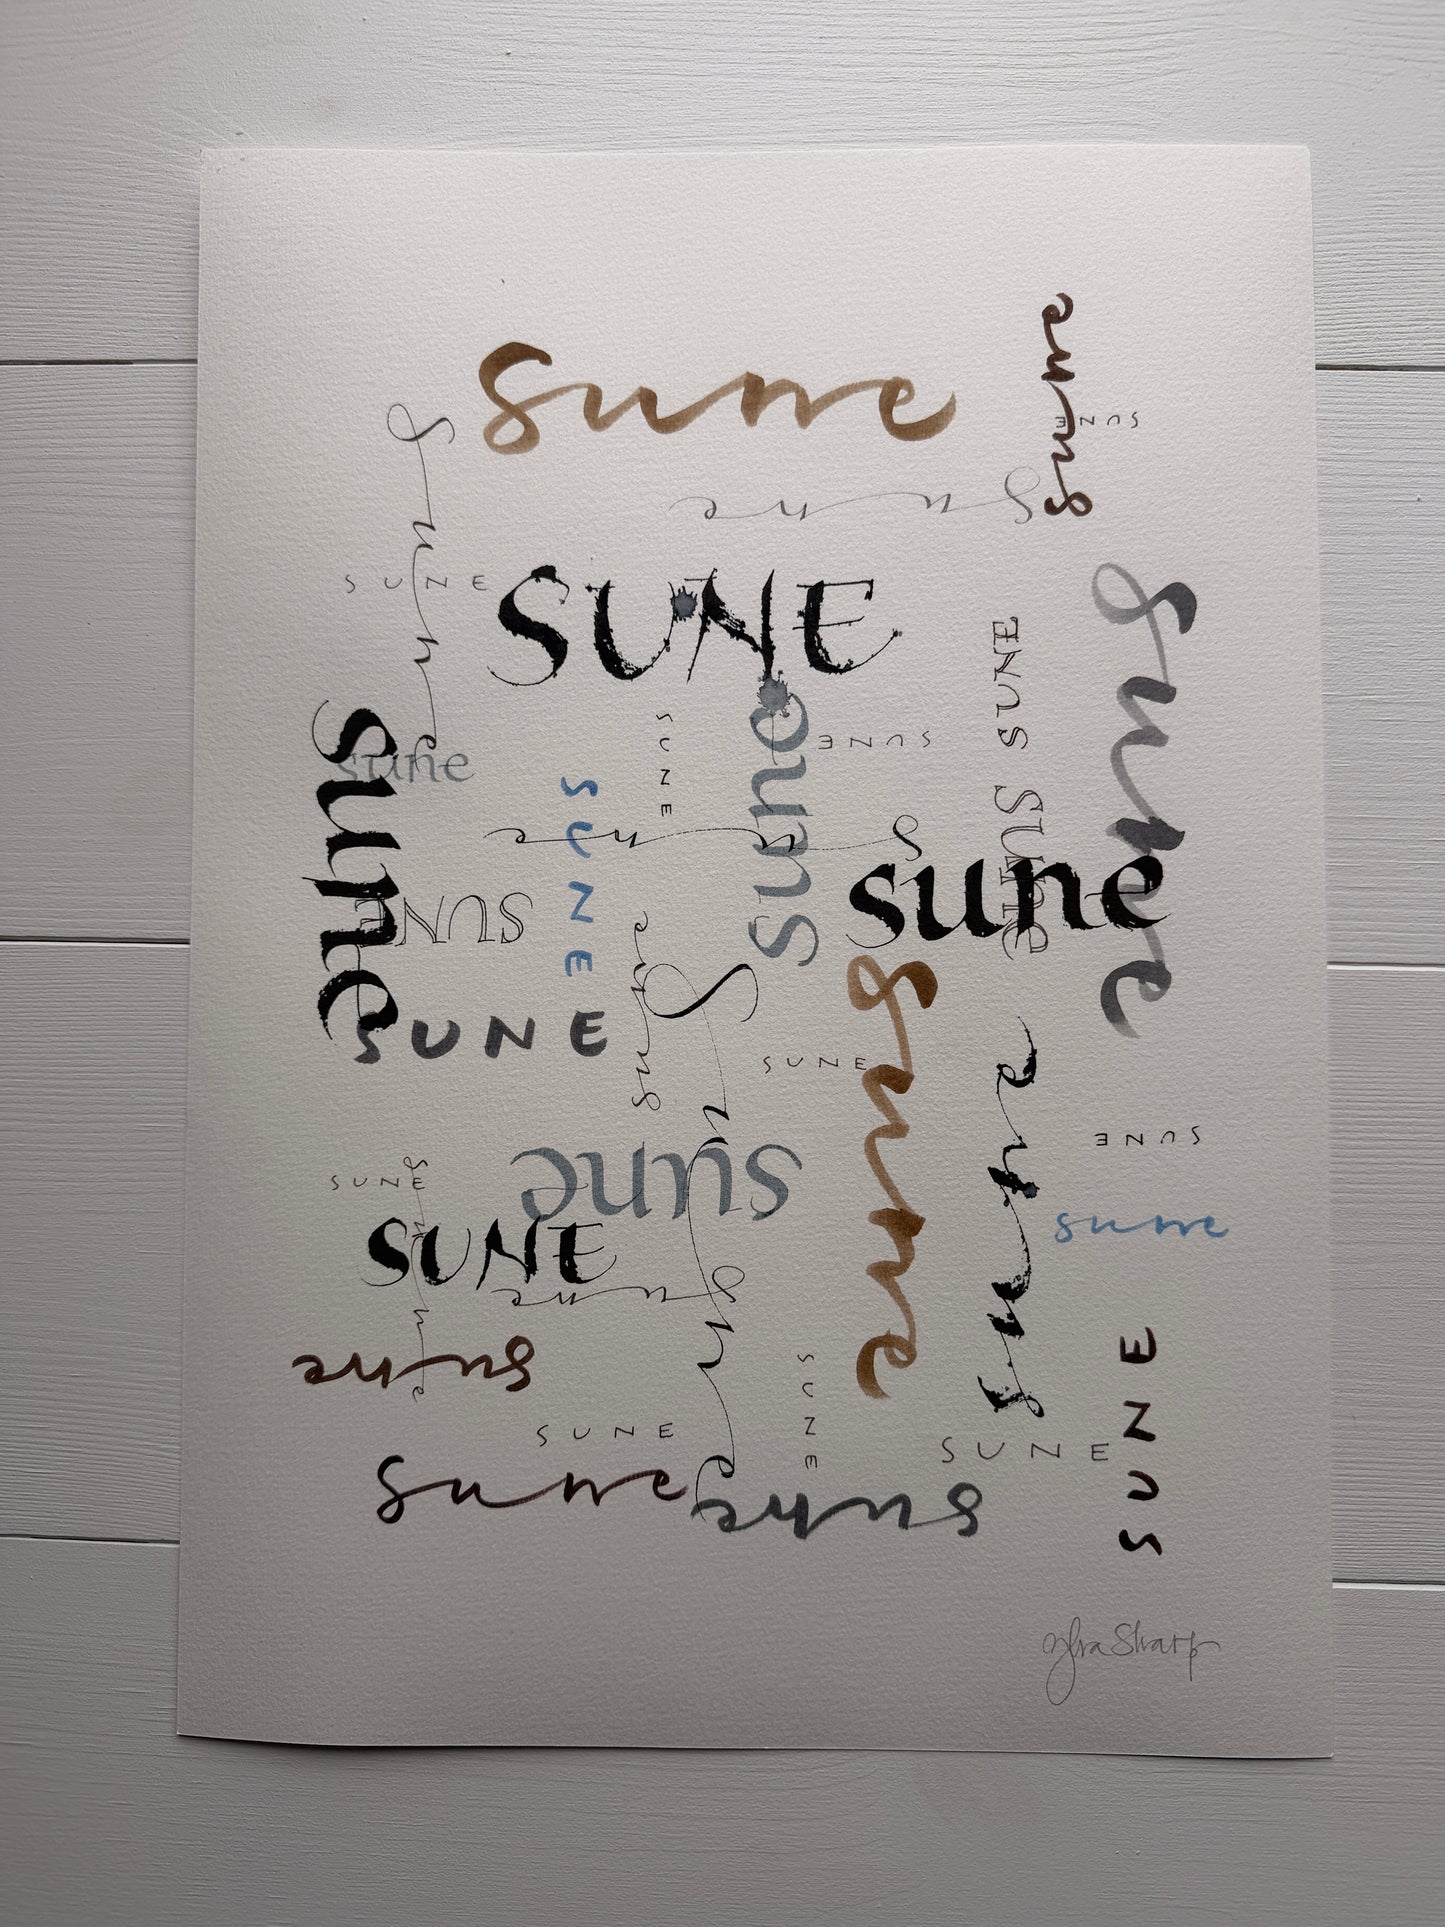 sune
sune
SUNE
sune
sune
SUNE
SUNE
SUNE
sune
sune
sune
SUNE
sune
SUNE
SUNE
sune
sune
sune
SUNE
sune
SUNE
sune
SUNE
sune
sune
SUNE
sune
SUNE
sune
sune
SUNE
sune
sune
SUNE
SUNE
SUNE
SUNE
sune
sune
Ylva Sharp